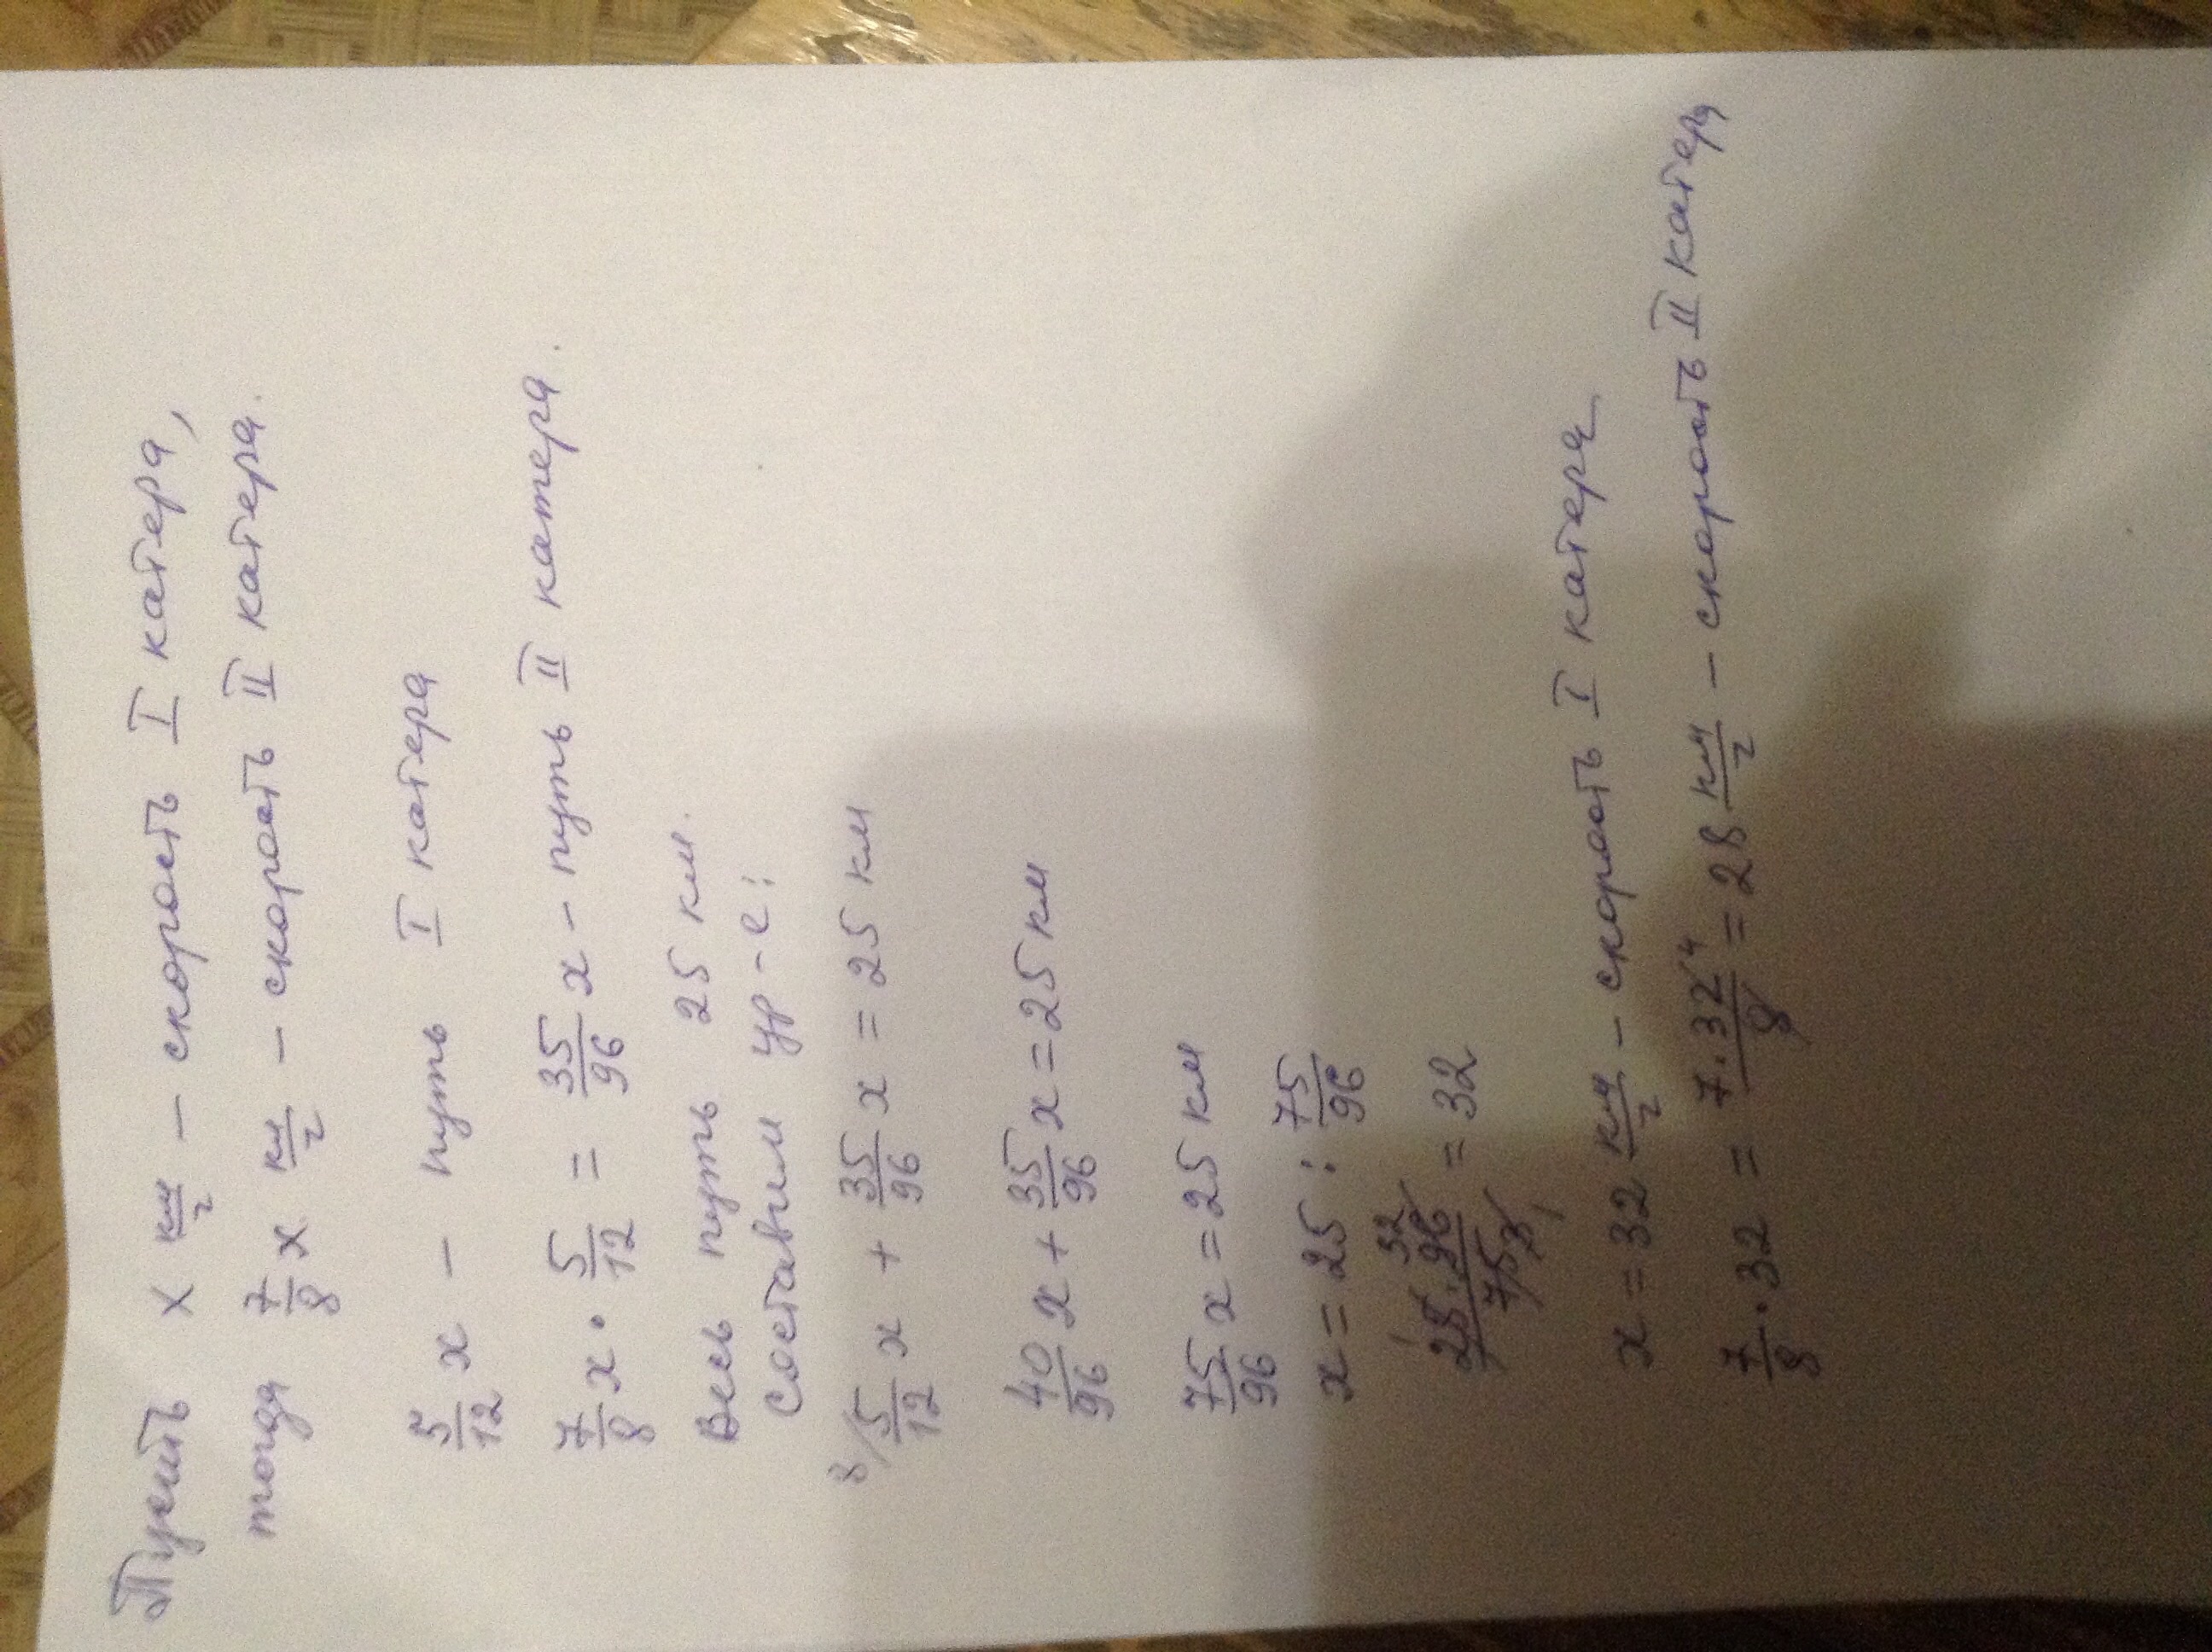 Пусть x км/ч – скорость I катера,
тогда 7/8 x км/ч – скорость II катера.
5/12 x – путь I катера
7/8 x · 5/12 = 35/96 x – путь II катера.
Весь путь 25 км.
Составим ур-е:
8/ 5/12 x + 35/96 x = 25 км
40/96 x + 35/96 x = 25 км
75/96 x = 25 км
x = 25 : 75/96
25 · 96 / 75 = 32
x = 32 км/ч – скорость I катера
7/8 · 32 = 7 · 32 4 / 8 = 28 км/ч – скорость II катера